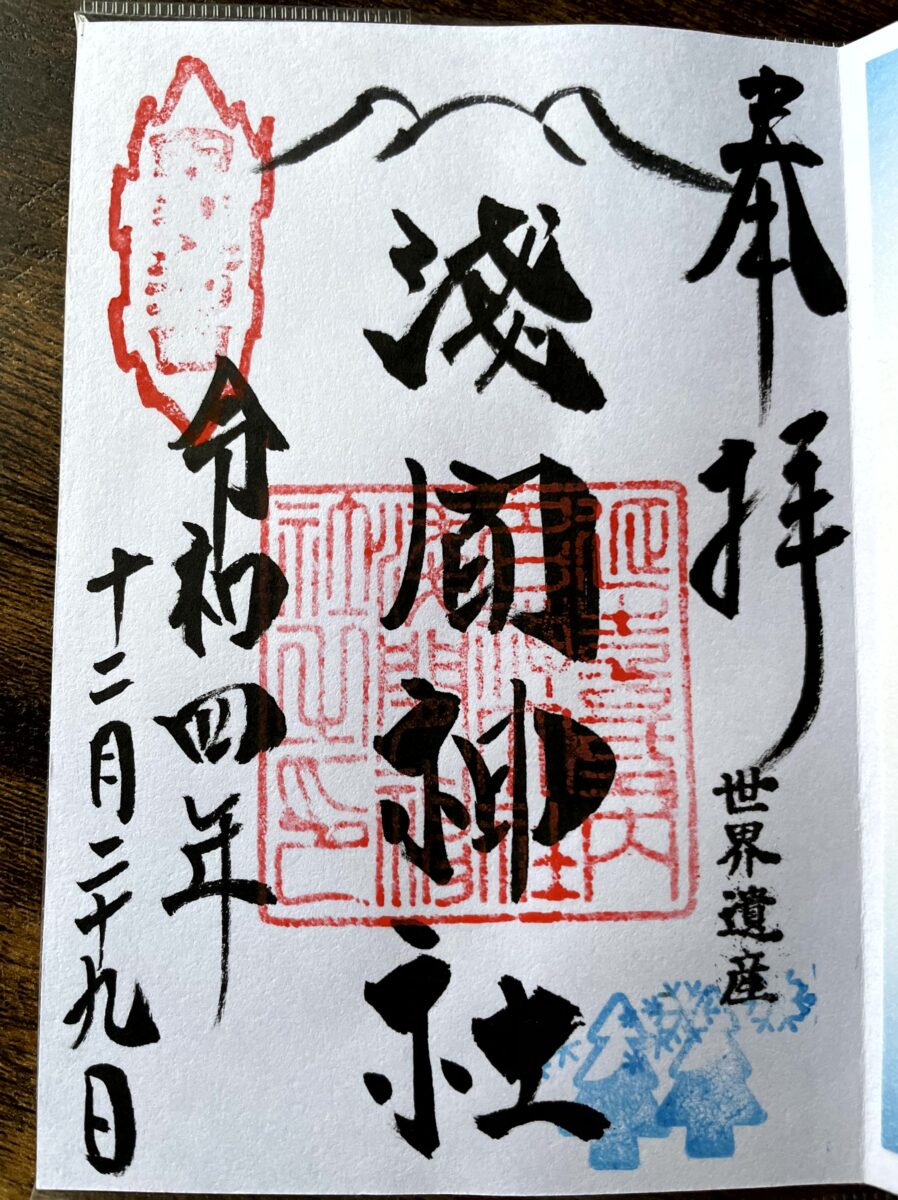 奉拝
世界遺産
淺間神社
令和四年
十二月二十九日